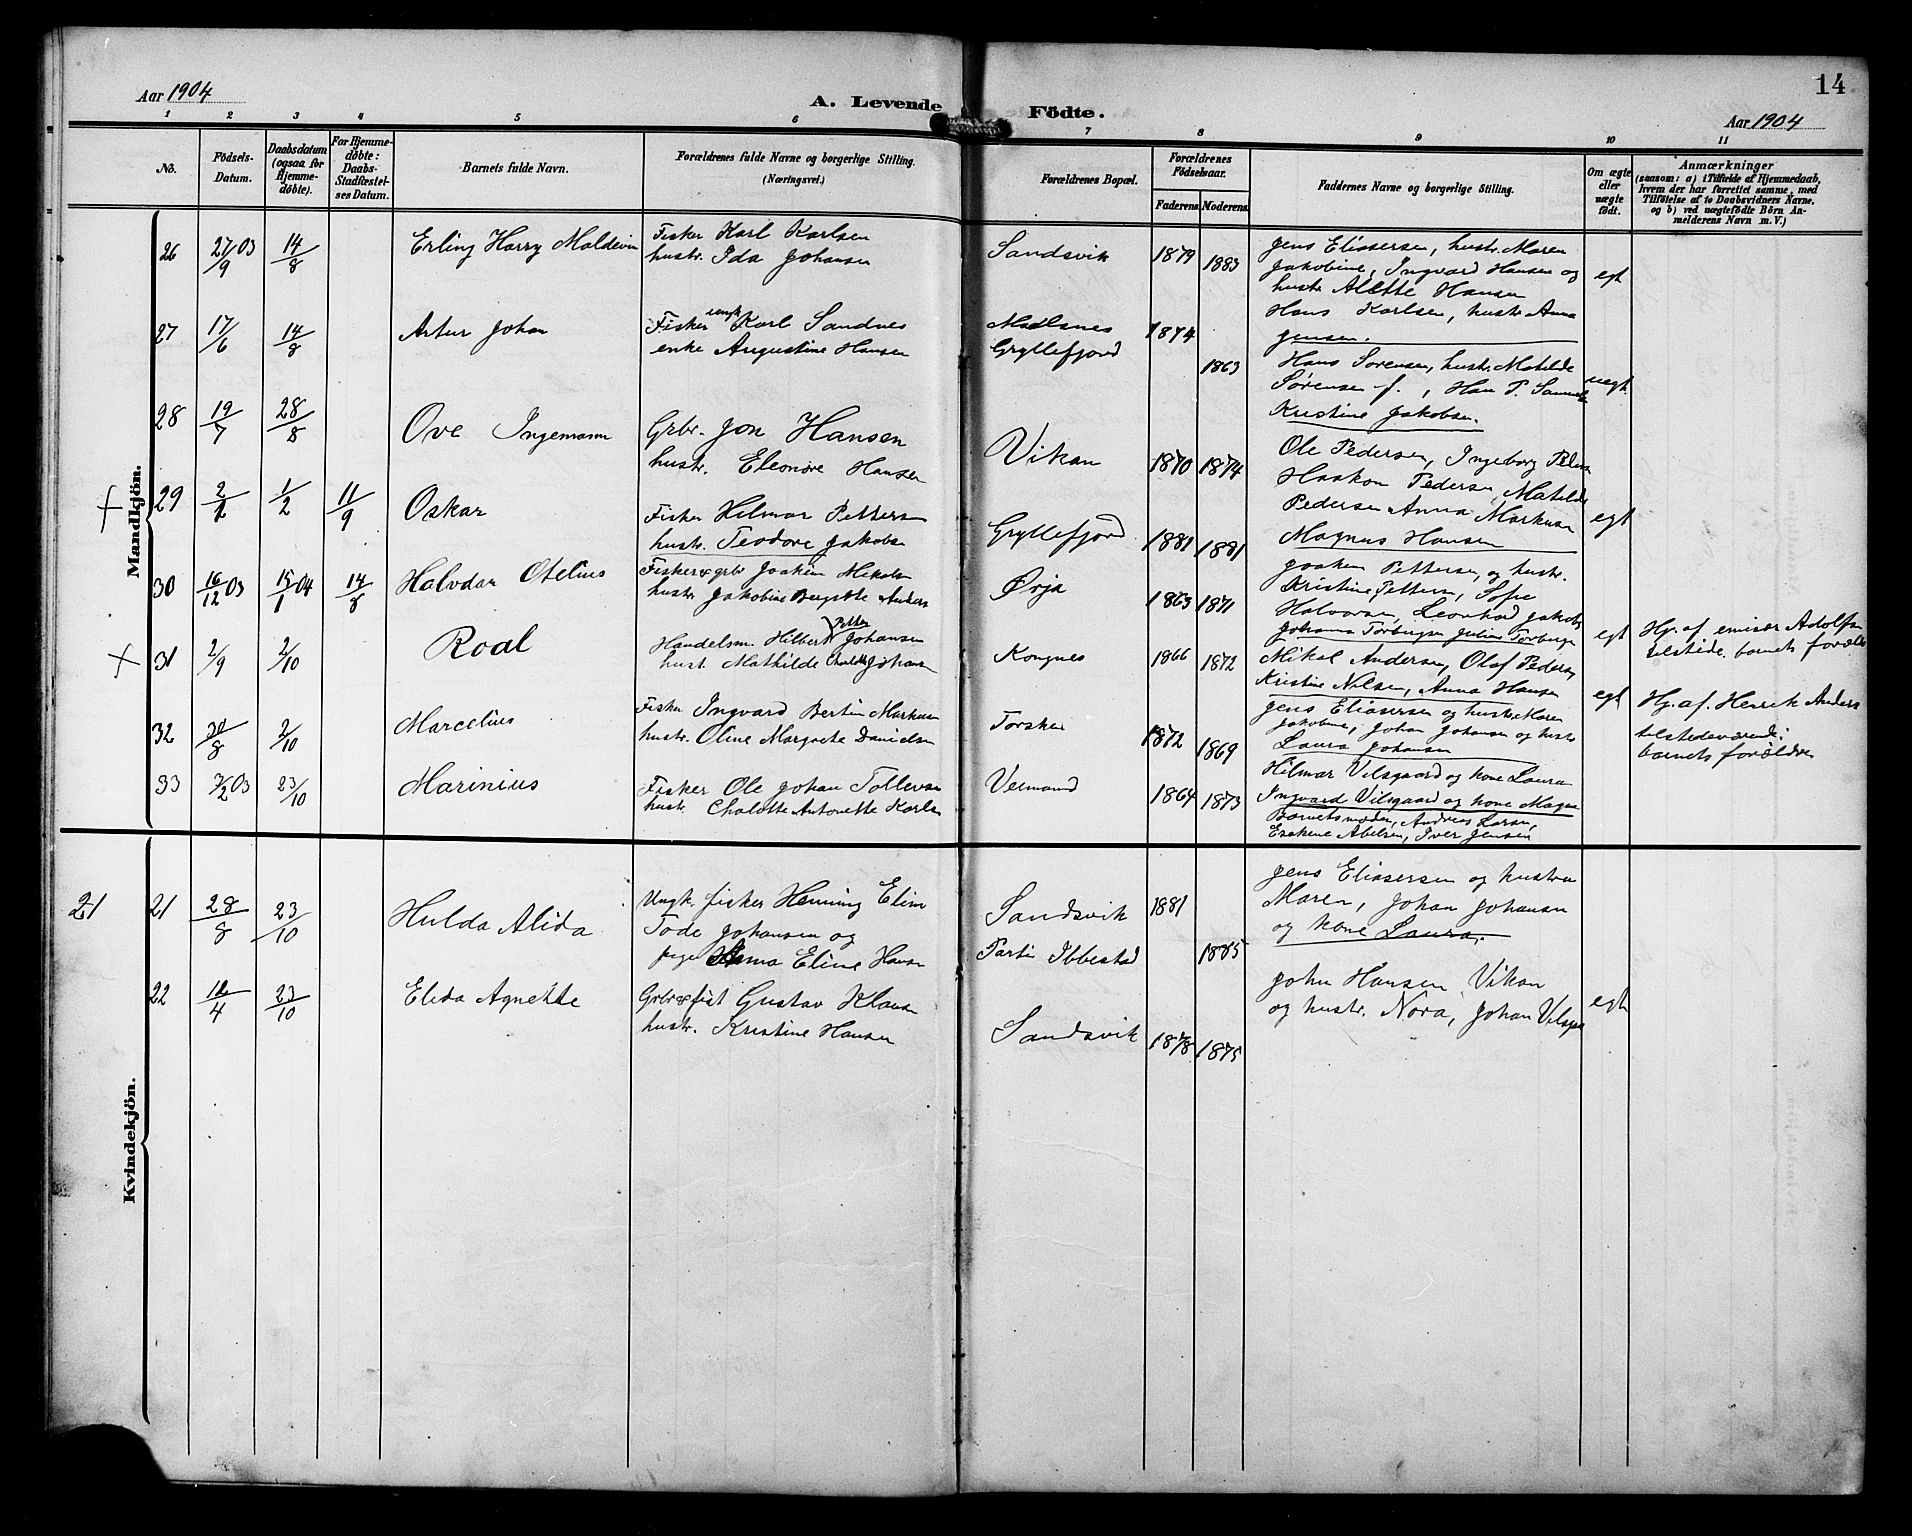 Aar 1904
A. Levende Födte.
14
Aar 1904
1 2 3 4 5 6 7 8 9 10 11
No.
Födsels-
Datum.
Daabsdatum
(ogsaa for
Hjemme-
döbte).
For Hjemme-
döbte:
Daabs-
Stadfæstel-
ses Datum.
Barnets fulde Navn.
Forældrenes fulde Navne og borgerlige Stilling.
(Næringsvei.)
Forældrenes Bopæl.
Forældrenes
Födselsaar.
Faderens. Moderens.
Faddernes Navne og borgerlige Stilling.
Om ægte
eller
uægte
födt.
Anmærkninger
(saasom: a) i Tilfælde af Hjemmedaab,
hvem der har forrettet samme, med
Tilföielse af to Daabsvidners Navne,
og b) ved uægtefödte Börn An-
melderens Navn m. V.)
Mandkjön.
26 27/9 03 14/8 Erling Harry Moldevin
Fisker Karl Karlsen
hustr. Ida Johansen
Sandsvik 1879 1883
Jens Eliasersen, hustr. Maren
Jakobine, Ingvard Hansen og
hustr Alette Hansen
egt
27 17/6 14/8 Artur Johan
Fisker ungk Karl Sandnes
enke Augustine Hansen
Gryllefjord 1874 1863
Hans Karlsen, hustr Anna
Jensen.
Hans Sørensen, hustr. Matilde
Sørensen f., Han P.
Kristine Jakobsen.
uegt.
28 19/7 28/8 Ove Ingemann
Grbr. Jon Hansen
hustr. Eleonore Hansen
Vikan 1870 1874
Ole Pedersen, Ingeborg
Haakon Pedersen, Matilde
Pedersen Anna Markusen
Magnus Hansen
egt
29 1/2 11/9 Oskar
Fisker Hilmar Pettersen
hustr. Teodore Jakobsen
Gryllefjord 1881 1881
Joakem Pettersen, og hustr.
Kristine Pettersen, Sofie
Halvorsen, Leonhard Jakobs
30 16/12 03 15/1 04 14/8 Halvdar Otelius
Fisker & grbr Joakim Mikals
hustr Jakobine Anders
Ørja 1863 1871
Johanna Torbergsen Julius Torbergs
egt
Hj. af. emisær Adolfsn
tilstede. barnets foræld
31 2/9 2/10 Roal
Handelsm. Hilbert Petter Johansen
hust. Mathilde Johansn
Kongnes 1866 1872
Mikal Andersen, Olaf Pedersn
Kristine Nilsen, Anna Hansen
egt
Hj. af. Henrik Anders
tilstedeværende:
barnets forældre
32 30/8 2/10 Marcelius
Fisker Ingvard Bertin Markusn
hustr. Oline Margrete Danielsn
Torsken 1872 1869
Jens Eliasersen og hustr Maren
Jakobine, Johan Johansen og hustr
Laura Johansen
33 03 23/10 Marinius
Fisker Ole Johan Tollevsn
hustr. Chalotte Antonette Karls
Veimand 1864 1873
Hilmar Vilsgaard og kone Laura
Ingvard Vilsgaard og kone Magna
Barnets moder, Andreas Larsen,
Esekene Abelsen, Iver Jensen
Kvindekjön.
21 21 28/8 23/10 Hulda Alida
Ungk. fisker Henning Elim
Tode Johansen og
pige Eline Hansn
Sandsvik 1881
Parti Ibbestad 1885
Jens Eliasersen og hustru
Maren, Johan Johansen
og kone Laura.
22 12/4 23/10 Elida Agnette
Grbr & fisk Gustav Klausn
hustr. Kristine Hansen
Sandsvik 1878 1875
John Hansen Vikan
og hustr. Nora, Johan Vilsgd
egt